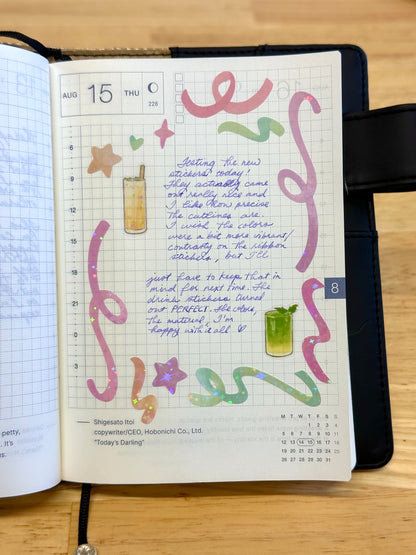 AUG 15 THU
228
6
9
12
15
18
21
0
3
Testing the new
stickers today!
They actually came
out really nice and
I like how precise
the cutlines are.
I wish the colors
were a bit more vibrant/
contrasty on the ribbon
stickers, but I'll
just have to keep that in
mind for next time. The
drink stickers turned
out PERFECT. The colors,
the material, I'm
happy with it all
8
Shigesato Itoi
copywriter/CEO, Hobonichi Co., Ltd.
"Today's Darling"
M T W T F S S
1 2 3 4
5 6 7 8 9 10 11
12 13 14 15 16 17 18
19 20 21 22 23 24 25
26 27 28 29 30 31
petty,
It's
us.